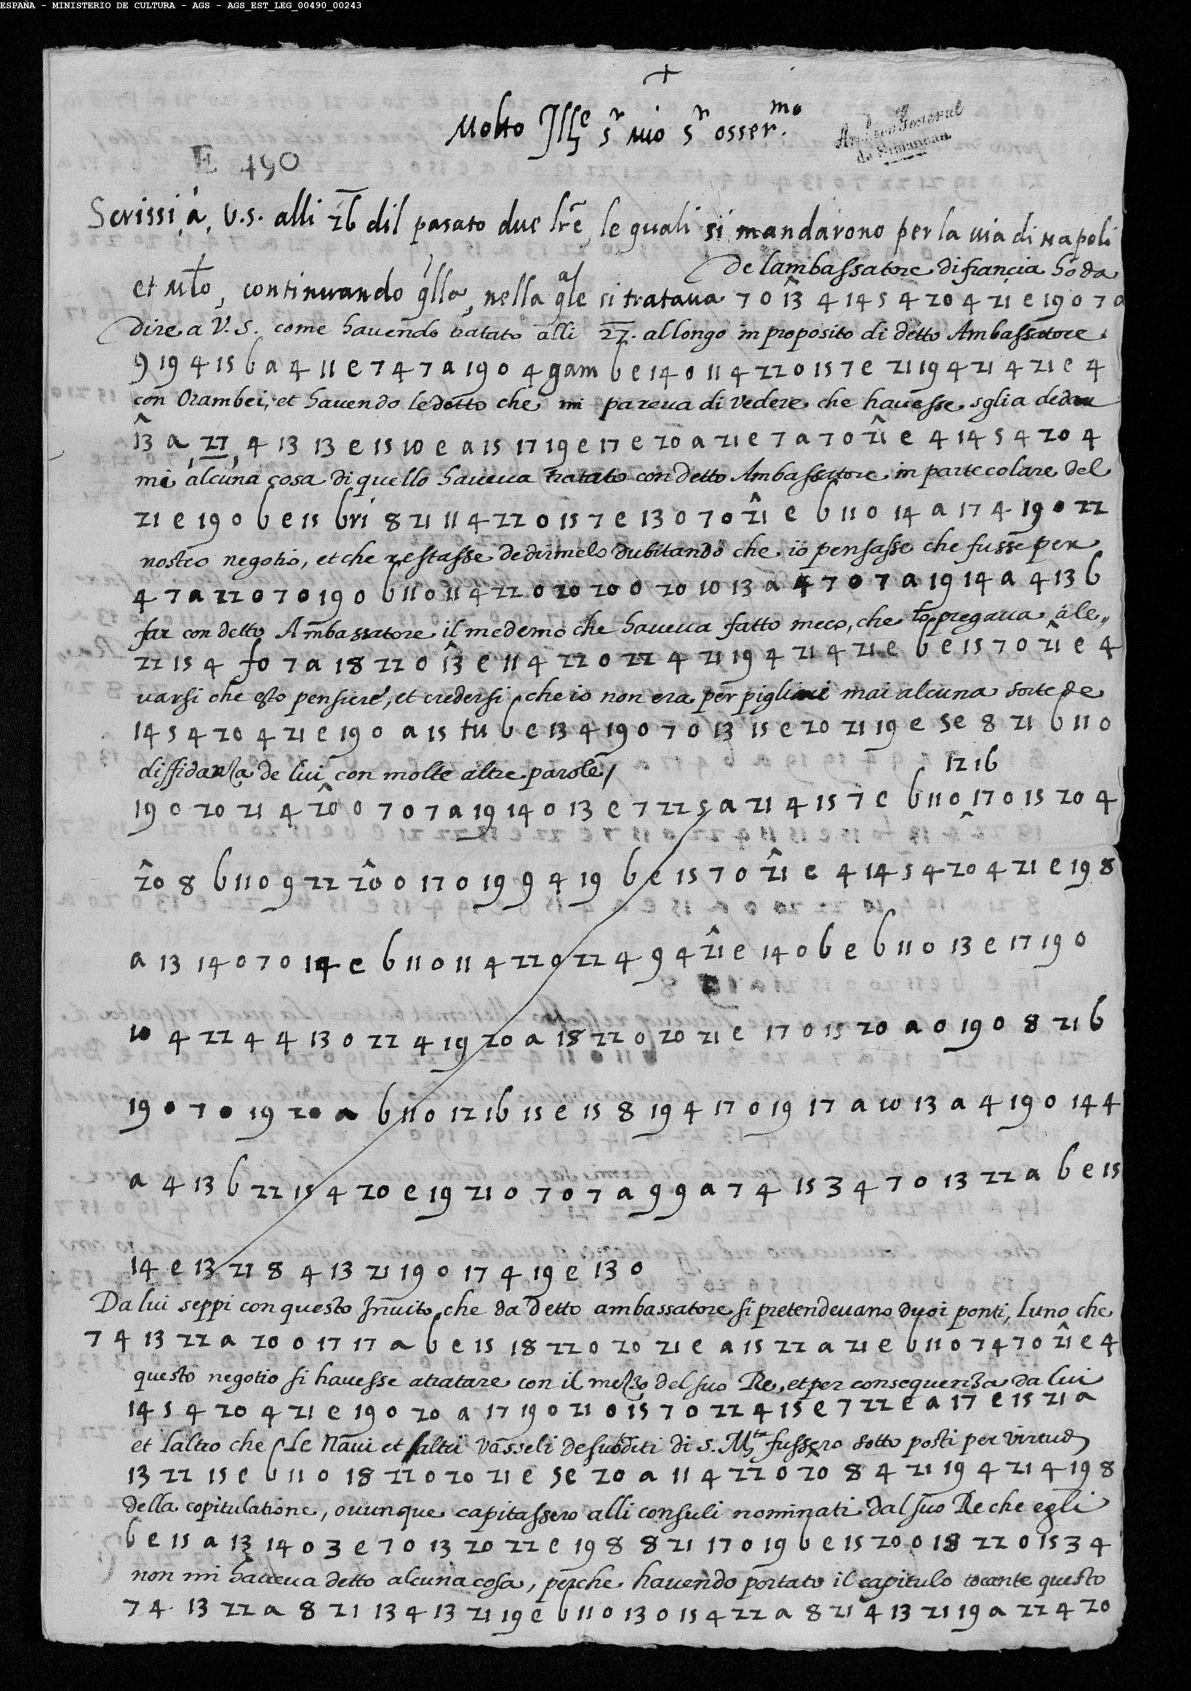 ESPAÑA - MINISTERIO DE CULTURA - AGS - AGS_EST_LEG_00490_00243
+
Molto Ill.e s.r mio s.r osser.mo
E 490
Archivo General de Simancas
Scrissi à V.S. alli 26 dil pasato due lr̃e, le quali si mandarono per la via di Napoli
De lambassatore di francia ho da
et Mlto, continuando q̃lla, nella q̃ale si tratava 7 0 1̂3 4 14 5 4 20 4 21 e 19 0 7 a
Dire a V.S. come havendo tratato alli 27. allongo in proposito di detto Ambassatore
9 19 4 15 b a 4 11 e 7 4 7 a 19 0 4 gam b e 14 0 11 4 22 0 15 7 e 21 19 4 21 4 21 e 4
con Orambei, et havendo le detto che mi pareva di vedere che havesse sglia de dar
1̂3 a 27, 4 13 13 e 15 10 e a 15 17 19 e 17 e 20 a 21 e 7 a 7 0 2̂1 e 4 14 5 4 20 4
mi alcuna cosa di quello haveva tratato con detto Ambassatore in partecolare del
21 e 19 0 b e 15 bri 8 21 11 4 22 0 15 7 e 13 0 7 0 2̂1 e b 11 0 14 a 17 4 19 0 22
nostro negotio, et che restasse dedirmelo dubitando che io pensasse che fusse per
4 7 a 22 0 7 0 19 0 b 11 0 11 4 22 0 20 20 0 20 10 13 a 4 7 0 7 a 19 14 a 4 13 b
far con detto Ambassatore il medemo che haveva fatto meco, che lo pregava à le,,
22 15 4 fo 7 a 18 22 0 1̂3 e 11 4 22 0 22 4 21 19 4 21 4 21 e b e 15 7 0 2̂1 e 4
varsi che q̃sto pensiere, et credersi che io non era per pigliare mai alcuna sorte de
14 5 4 20 4 21 e 19 0 a 15 tu b e 13 4 19 0 7 0 13 15 e 20 21 19 e se 8 21 b 11 0
diffidanza de lui con molte altre parole/
12 16
19 0 20 21 4 2̂0 0 7 0 7 a 19 14 0 13 e 7 22 5 a 21 4 15 7 e b 11 0 17 0 15 20 4
2̂0 8 b 11 0 9 22 2̂0 0 17 0 19 9 4 19 b e 15 7 0 2̂1 e 4 14 5 4 20 4 21 e 19 8
a 13 14 0 7 0 14 e b 11 0 11 4 22 0 22 4 9 4 2̂1 e 14 0 b e b 11 0 13 e 17 19 0
10 4 22 4 4 13 0 22 4 19 20 a 18 22 0 20 21 e 17 0 15 20 a 0 19 0 8 21 b
19 0 7 0 19 20 a b 11 0 12 16 15 e 15 8 19 4 17 0 19 17 a 10 13 a 4 19 0 14 4
a 4 13 b 22 15 4 20 e 19 21 0 7 0 7 a 9 9 a 7 4 15 3 4 7 0 13 22 a b e 15
14 e 13 21 8 4 13 21 19 0 17 4 19 e 13 0
Da lui seppi con questo Invito, che da detto ambassatore si pretendevano duoi ponti, luno che
7 4 13 22 a 20 0 17 17 a b e 15 18 22 0 20 21 e a 15 22 a 21 e b 11 0 7 4 7 0 2̂1 e 4
questo negotio si havesse atratare con il mezo del suo Re, et per consequenza da lui
14 5 4 20 4 21 e 19 0 20 a 17 19 0 21 0 15 7 0 22 4 15 e 7 22 e a 17 e 15 21 a
et laltro che le Navi et altri vasseli de subditi di S. M.ta fussero sotto posti per virtud
13 22 15 e b 11 0 18 22 0 20 21 e se 20 a 11 4 22 0 2̂0 8 4 21 19 4 21 4 19 8
della copitulatione, ovunque capitassero alli consuli nominati dal suo Re che egli
b e 15 a 13 14 0 3 e 7 0 13 20 22 e 19 8 8 21 17 0 19 b e 15 20 0 18 22 0 15 3 4
non mi haveva detto alcuna cosa, perche havendo portato il capitulo tocante questo
7 4 13 22 a 8 21 13 4 13 21 19 e b 11 0 13 0 15 4 22 a 8 21 4 13 21 19 a 22 4 20